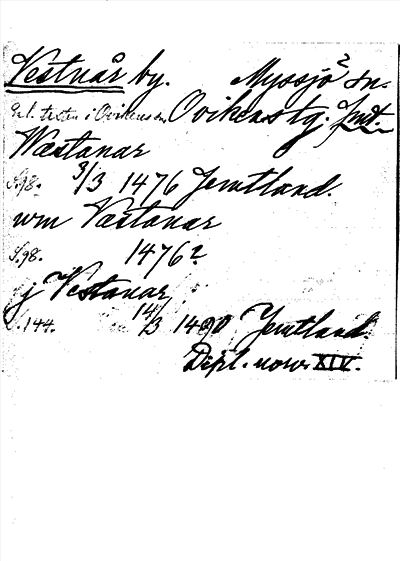 Vestnår by. Myssjö2 sn.
Enl. texten i Ovikens sn. Ovikens tg. Jmt.
Wæstanar
S.98. 3/3 1476 Jemtland.
wm Væstanar
S.98. 1476?
j Vestanar
S.144. 14/3 1490 Jemtland.
Dipl. norv. XIV.